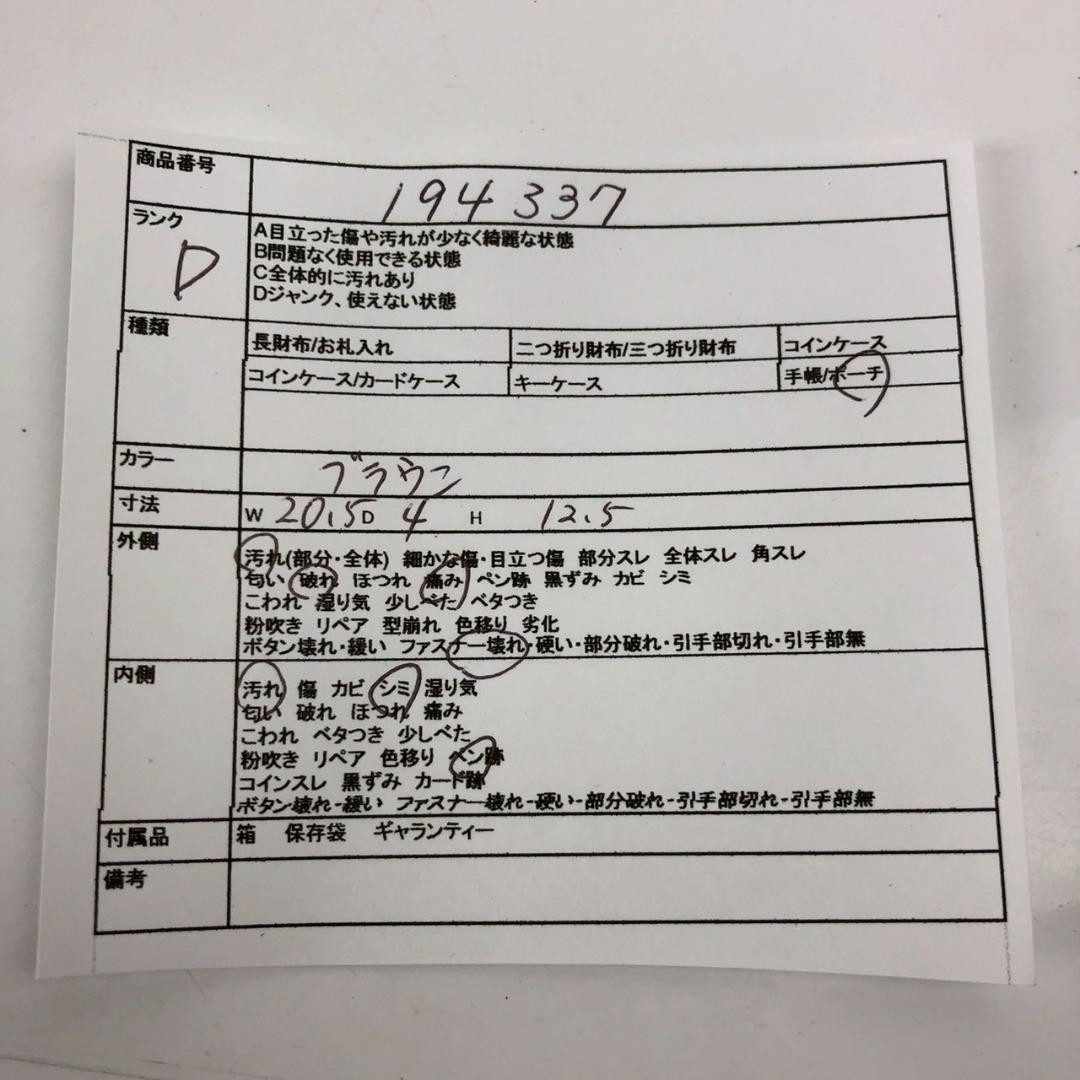 商品番号 194337
ランク D
A目立った傷や汚れが少なく綺麗な状態
B問題なく使用できる状態
C全体的に汚れあり
Dジャンク、使えない状態
種類
長財布/お札入れ 二つ折り財布/三つ折り財布 コインケース
コインケース/カードケース キーケース 手帳/ポーチ
カラー ブラウン
寸法 W 20.5 D 4 H 12.5
外側
汚れ(部分・全体) 細かな傷・目立つ傷 部分スレ 全体スレ 角スレ
匂い 破れ ほつれ 痛み ペン跡 黒ずみ カビ シミ
こわれ 湿り気 少しべた ベタつき
粉吹き リペア 型崩れ 色移り 劣化
ボタン壊れ・緩い ファスナー壊れ・硬い・部分破れ・引手部切れ・引手部無
内側
汚れ 傷 カビ シミ 湿り気
匂い 破れ ほつれ 痛み
こわれ ベタつき 少しべた
粉吹き リペア 色移り ペン跡
コインスレ 黒ずみ カード跡
ボタン壊れ-緩い ファスナー壊れ-硬い-部分破れ-引手部切れ-引手部無
付属品 箱 保存袋 ギャランティー
備考